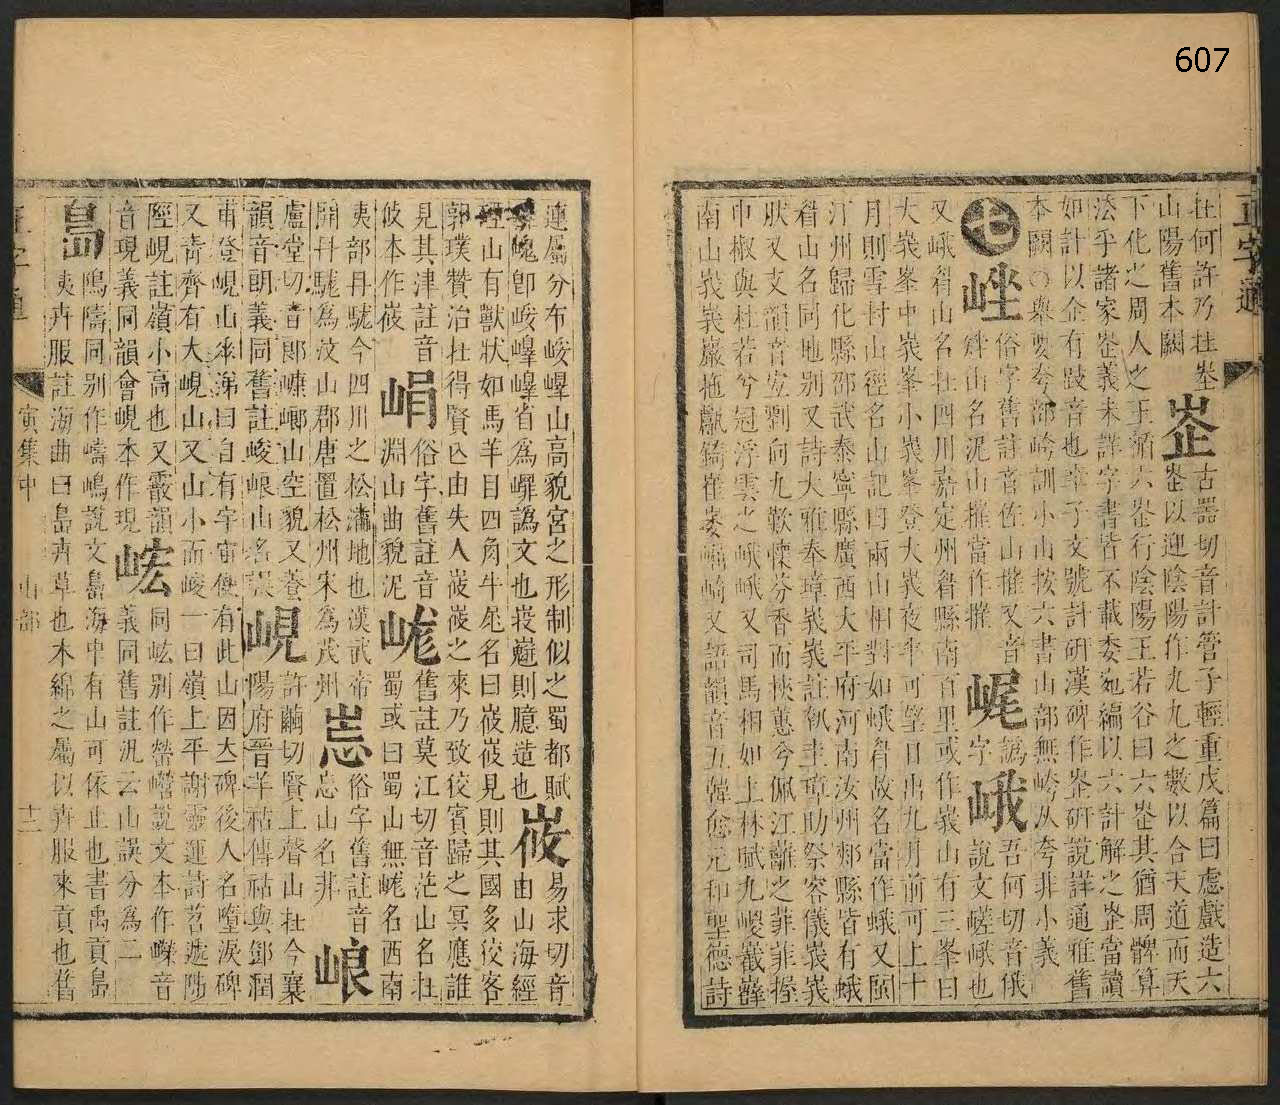 607
正字通
在何許乃在
山陽舊本闕
峜
古器切音計管子輕重戊篇曰慮戲造六
峜以迎陰陽作九九之數以合天道而天
下化之周人之王循六峜行陰陽王若谷曰六峜其猶周髀算
法乎諸家峜義未詳字書皆不載委宛編以六計解之峜當讀
如計以企有跂音也幸子文號計研漢碑作峜研說詳通雅舊
本闕○
小山按六書山部無峜从夸非小義
七
㟇
俗字舊註音佐山摧又音
山名泥山摧當作摧
㞾
譌字
峨
吾何切音俄
說文嵯峨也
又峨眉山名在四川嘉定州眉縣南百里或作峩山有三峯曰
大峩峯中峩峯小峩峯登大峩夜半可望日出九月前可上十
月則雪封山徑名山記曰兩山相對如蛾眉故名當作蛾又閩
汀州歸化縣邵武泰寧縣廣西大平府河南汝州郟縣皆有峨
眉山名同地别又詩大雅奉璋峩峩註執圭璋助祭容儀峩峩
狀又支韻音宐劉向九歎懷芬香而挾蕙兮佩江蘺之菲菲握
申椒與杜若兮冠浮雲之峨峨又司馬相如上林賦九嵕巀嶭
南山峩峩巖陁甗錡嶊崣崛崎又語韻音五韓愈元和聖德詩
連屬分布峻嶧山高貌宮之形制似之蜀都賦
嵬卽峻嶧嶧省爲㠂譌文也㠂則臆造也
峳
易求切音
由山海經
山有獸狀如馬羊目四角牛尾名曰峳峳見則其國多狡客
郭璞贊治在得賢亡由失人峳峳之來乃致狡賓歸之冥應誰
見其津註音
攸本作峳
㟩
俗字舊註音
淵山曲貌泥
㟌
舊註莫江切音茫山名在
蜀或曰蜀山無㟌名西南
夷部丹駹今四川之松潘地也漢武帝
開丹駹爲汶山郡唐置松州宋爲茂州
㞻
俗字舊註音
忘山名非
峎
盧堂切音郎㟍峎山空貌又養
韻音朗義同舊註峻峎山名誤
峴
許繭切賢上聲山在今襄
陽府晉羊祜傳祜與鄒潤
甫登峴山垂涕曰自有宇宙便有此山因立碑後人名墮淚碑
又青齊有大峴山又山小而峻一曰嶺上平謝靈運詩苕遞陟
陘峴註嶺小高也又霰韻
音現義同韻會峴本作現
峵
同𡵓别作嶸㠕說文本作嶸音
義同舊註汎云山誤分爲二
島
隝㠀同别作嶹嶋說文島海中有山可依止也書禹貢島
夷卉服註海曲曰島卉草也木綿之屬以卉服來貢也舊
正字通
寅集中
山部
十二